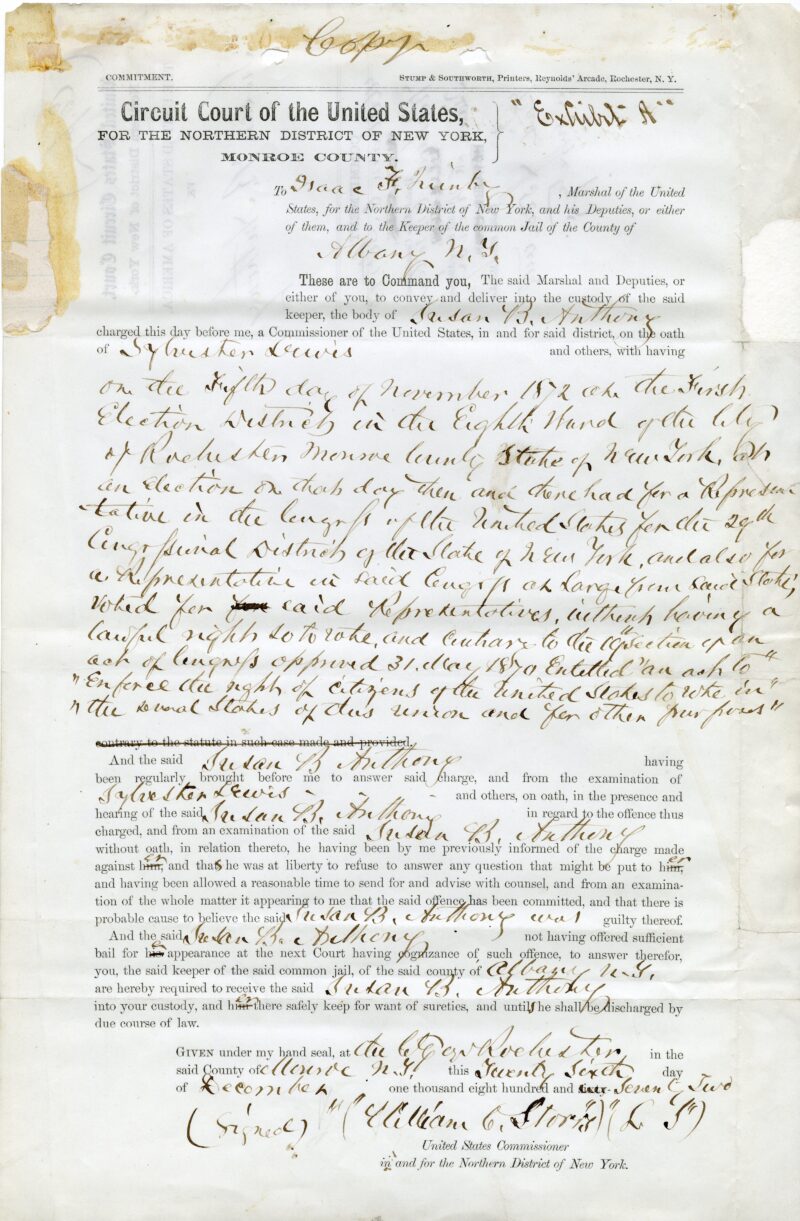 Copy
COMMITMENT. STUMP & SOUTHWORTH, Printers, Reynolds' Arcade, Rochester, N. Y.
Circuit Court of the United States,
FOR THE NORTHERN DISTRICT OF NEW YORK,
MONROE COUNTY.
"Exhibit A"
To Isaac F. Quinby, Marshal of the United
States, for the Northern District of New York, and his Deputies, or either
of them, and to the Keeper of the common Jail of the County of
Albany N.Y.
These are to Command you, The said Marshal and Deputies, or
either of you, to convey and deliver into the custody of the said
keeper, the body of Susan B. Anthony
charged this day before me, a Commissioner of the United States, in and for said district, on the oath
of Sylvester Lewis and others, with having
on the Fifth day of November 1872 at the First
Election District in the Eighth Ward of the City
of Rochester Monroe County State of New York, at
an election on that day then and there had for a Represen
tative in the Congress of the United States for the 29th
Congressional District of the State of New York, and also for
a Representative in said Congress at Large from said State,
voted for for said Representatives, without having a
lawful right so to vote, and contrary to the section of an
act of Congress approved 31. May 1870 Entitled "an act to"
"Enforce the right of citizens of the United States to vote in"
"the several States of this union and for other purposes"
contrary to the statute in such case made and provided.
And the said Susan B Anthony having
been regularly brought before me to answer said charge, and from the examination of
Sylvester Lewis and others, on oath, in the presence and
hearing of the said Susan B. Anthony in regard to the offence thus
charged, and from an examination of the said Susan B. Anthony
without oath, in relation thereto, he having been by me previously informed of the charge made
against her, and that she was at liberty to refuse to answer any question that might be put to her,
and having been allowed a reasonable time to send for and advise with counsel, and from an examina-
tion of the whole matter it appearing to me that the said offence has been committed, and that there is
probable cause to believe the said Susan B. Anthony was guilty thereof.
And the said Susan B. Anthony not having offered sufficient
bail for her appearance at the next Court having cognizance of such offence, to answer therefor,
you, the said keeper of the said common jail, of the said county of Albany N.Y.
are hereby required to receive the said Susan B. Anthony
into your custody, and her there safely keep for want of sureties, and until she shall be discharged by
due course of law.
GIVEN under my hand seal, at the City of Rochester in the
said County of Monroe N.Y. this Twenty Sixth day
of December one thousand eight hundred and Seventy Two
(Signed) "(William C. Storrs)" (L S")
United States Commissioner
in and for the Northern District of New York.